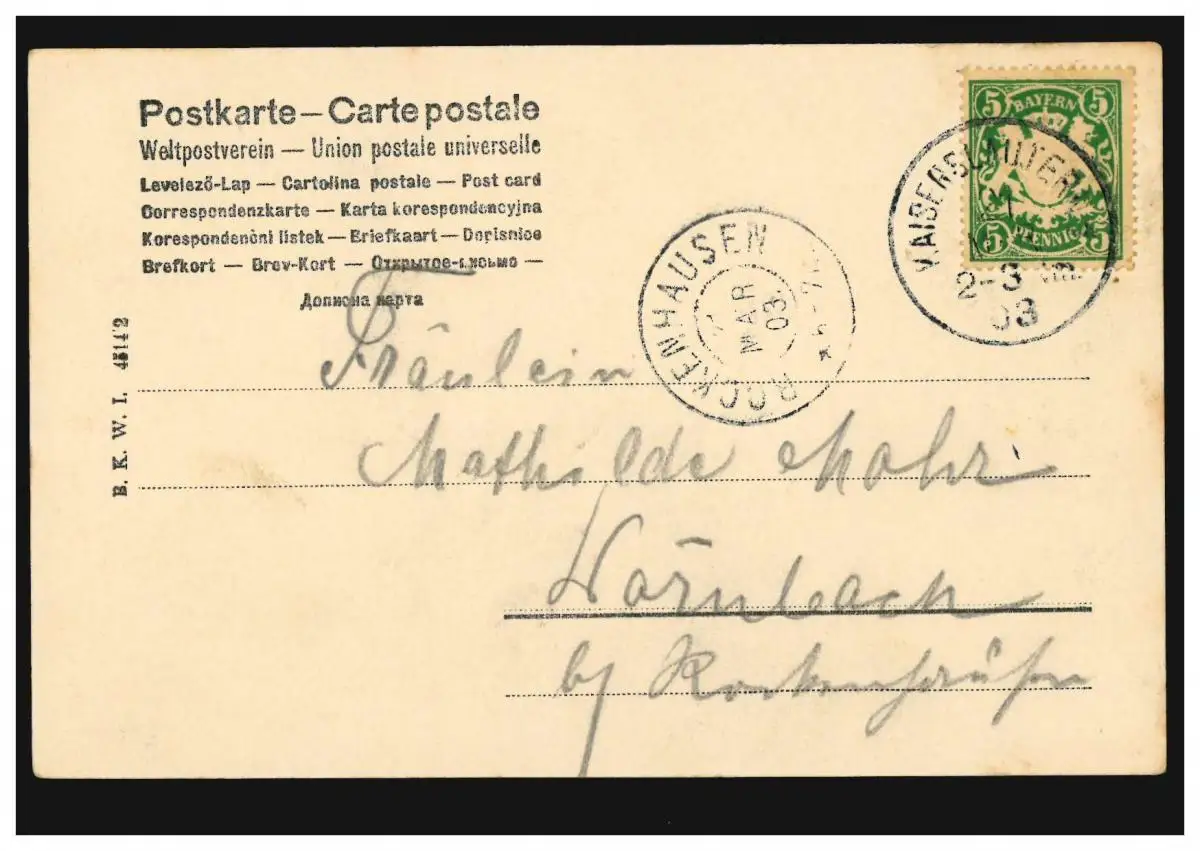 Postkarte – Carte postale
Weltpostverein — Union postale universelle
Levelező-Lap — Cartolina postale — Post card
Correspondenzkarte — Karta korespondencyjna
Korespondenční listek — Briefkaart — Dopisnice
Brefkort — Brev-Kort — Открытое письмо —
Дописна карта
B. K. W. I. 45142
5 BAYERN 5
5 PFENNIG 5
KAISERSLAUTERN
2-3
03
ROCKENHAUSEN
MAR
03
Fräulein
Mathilde Mohr
Dörnbach
b/ Rockenhausen